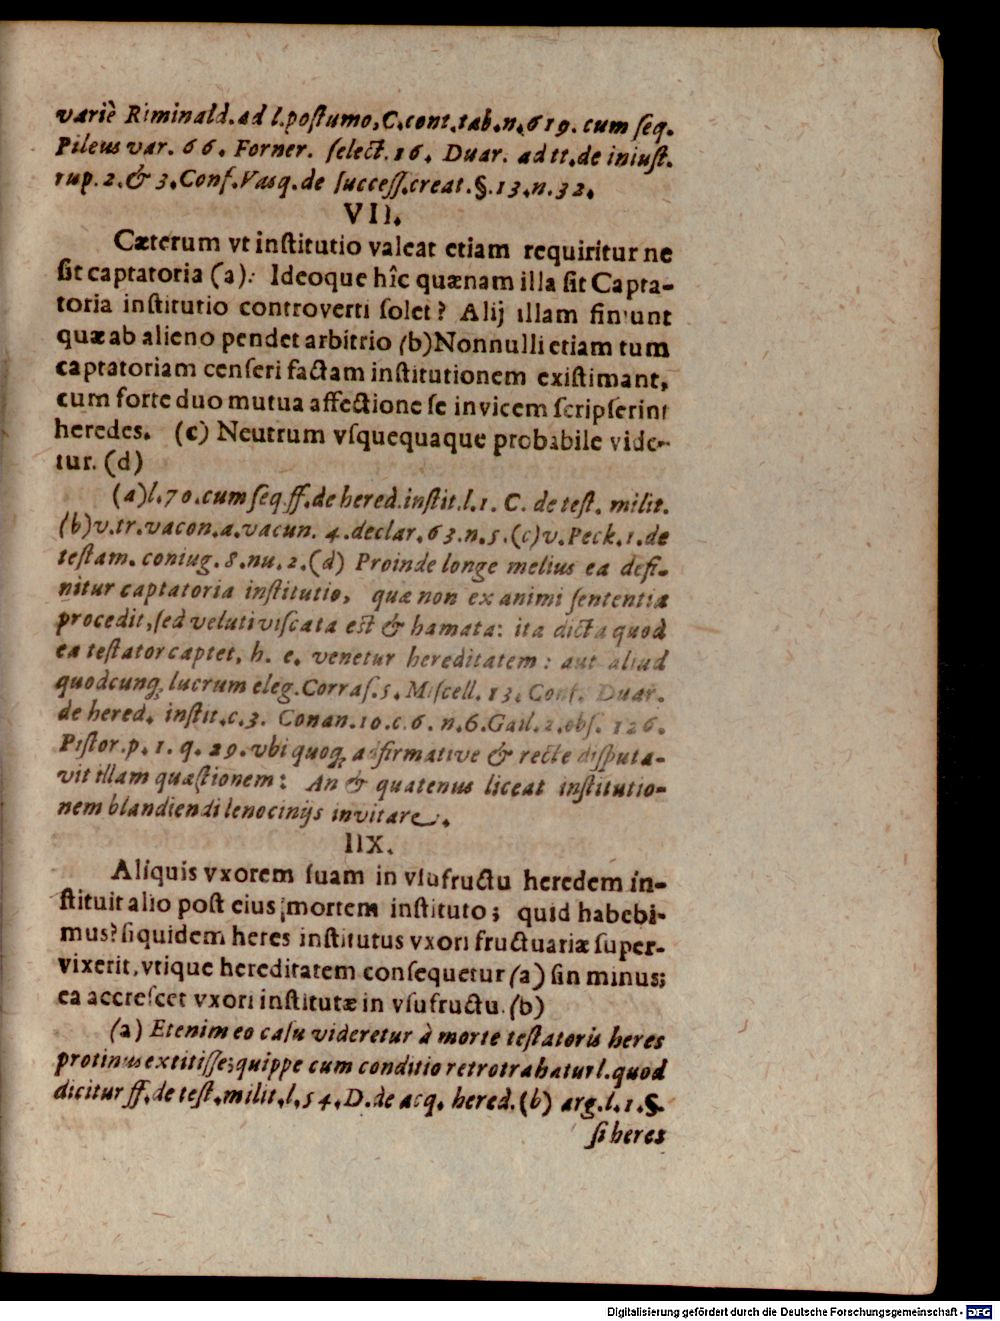 variè Riminald. ad l. postumo, C. cont. tab. n. 619. cum seq.
Pileus var. 66. Forner. select. 16. Duar. ad tt. de iniust.
rup. 2. & 3. Conf. Vasq. de success. creat. §. 13. n. 32.
VII.
Cæterum vt institutio valeat etiam requiritur ne
sit captatoria (a): Ideoque hîc quænam illa sit Capta-
toria institutio controverti solet? Alij illam finiunt
quæ ab alieno pendet arbitrio (b) Nonnulli etiam tum
captatoriam censeri factam institutionem existimant,
cum forte duo mutua affectione se invicem scripserint
heredes. (c) Neutrum vsquequaque probabile vide-
tur. (d)
(a) l. 70. cum seq. ff. de hered. instit. l. 1. C. de test. milit.
(b) v. tr. vacon. a. vacun. 4. declar. 63. n. 5. (c) v. Peck. 1. de
testam. coniug. 8. nu. 2. (d) Proinde longe melius ea defi-
nitur captatoria institutio, quæ non ex animi sententia
procedit, sed veluti viscata est & hamata: ita dicta quod
ea testator captet, h. e. venetur hereditatem: aut aliud
quodcunq; lucrum eleg. Corras. 5. Miscell. 13. Conf. Duar.
de hered. instit. c. 3. Conan. 10. c. 6. n. 6. Gail. 2. obs. 126.
Pistor. p. 1. q. 29. vbi quoq; adfirmative & recte disputa-
vit illam quæstionem: An & quatenus liceat institutio-
nem blandiendi lenocinijs invitare.
IIX.
Aliquis vxorem suam in vsufructu heredem in-
stituit alio post eius mortem instituto; quid habebi-
mus? siquidem heres institutus vxori fructuariæ super-
vixerit, vtique hereditatem consequetur (a) sin minus;
ea accrescet vxori institutæ in vsufructu. (b)
(a) Etenim eo casu videretur à morte testatoris heres
protinus extitisse; quippe cum conditio retrotrahatur l. quod
dicitur ff. de test. milit. l. 54. D. de acq. hered. (b) arg. l. 1. §.
si heres
Digitalisierung gefördert durch die Deutsche Forschungsgemeinschaft - DFG